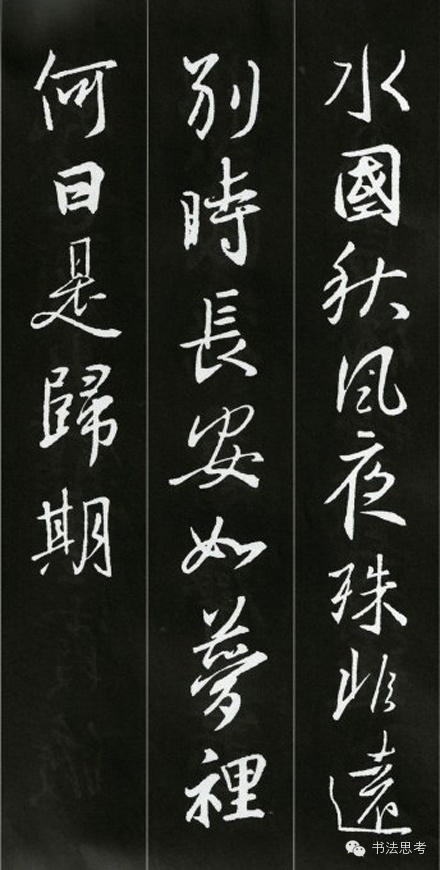 水國秋風夜殊非遠
別時長安如夢裡
何日是歸期
书法思考